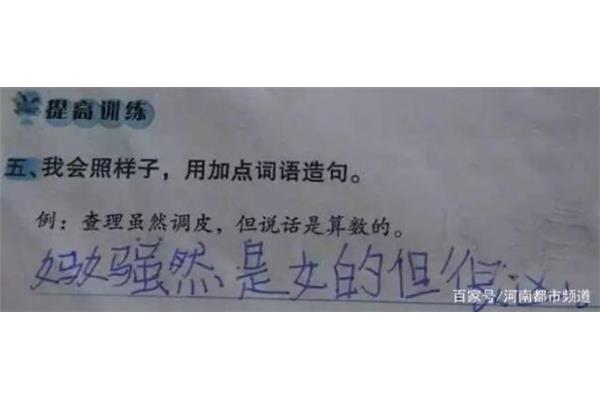 提高训练
五、我会照样子，用加点词语造句。
例：查理虽然调皮，但说话是算数的。
妈妈虽然是女的但很
百家号/河南都市频道